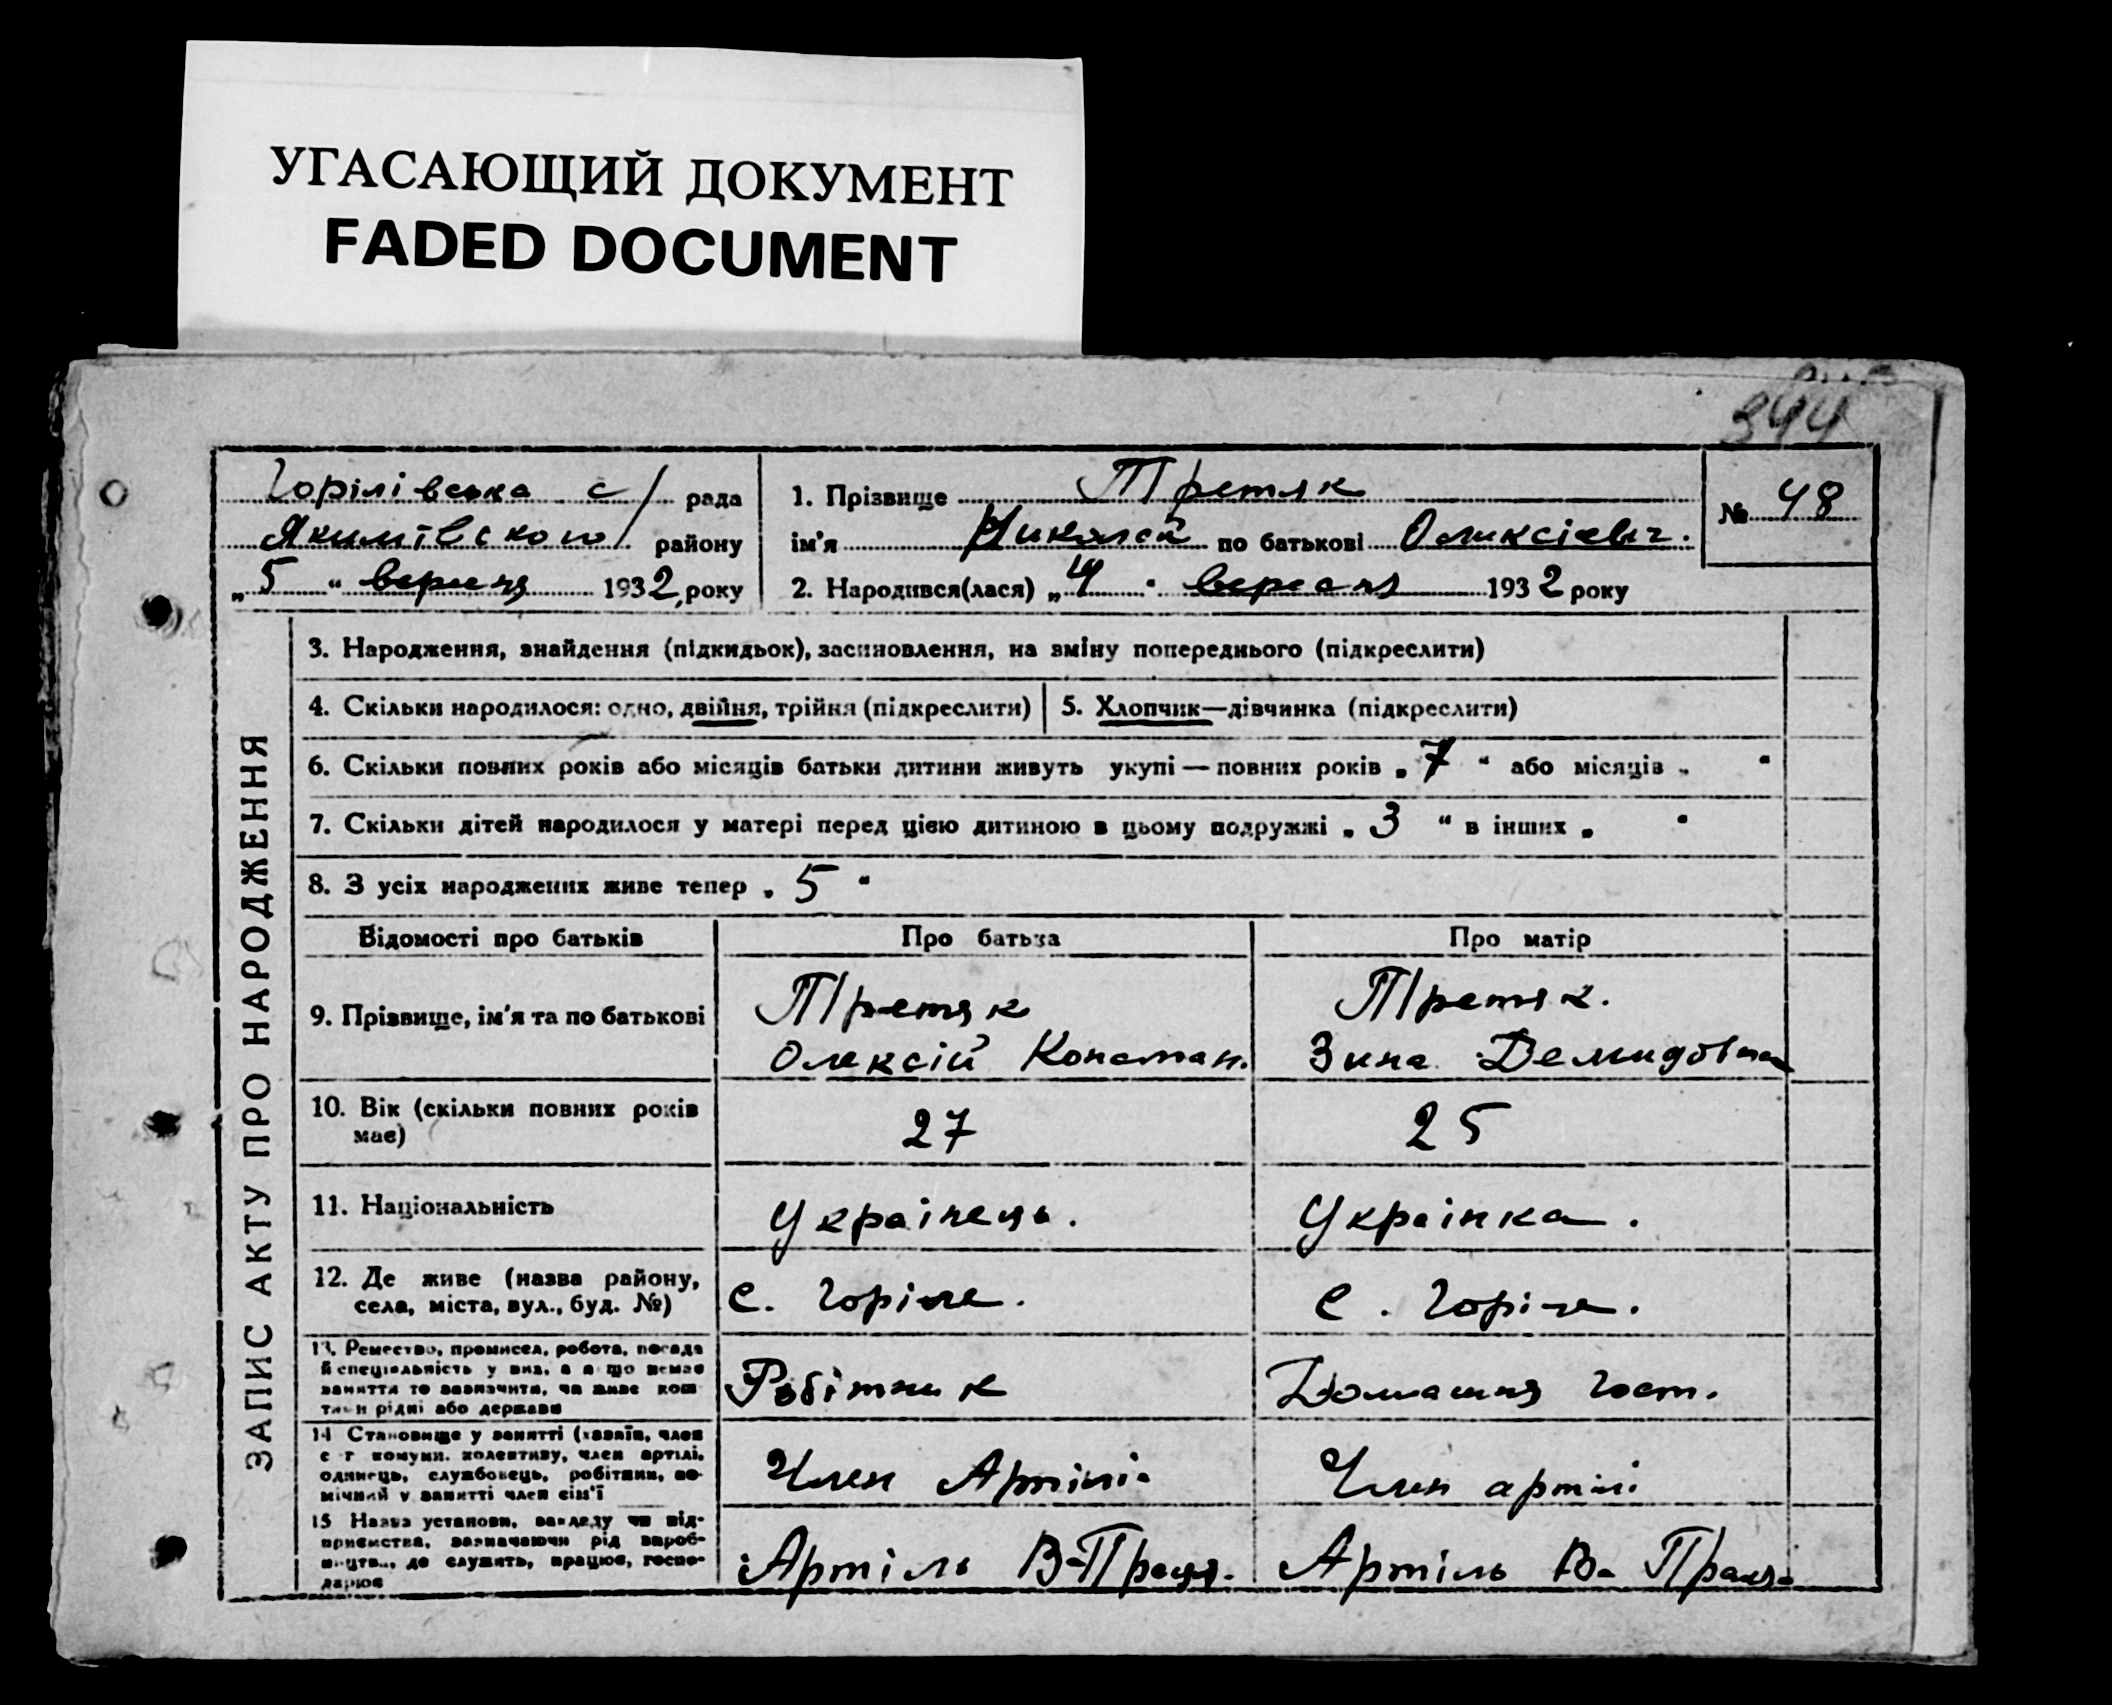 УГАСАЮЩИЙ ДОКУМЕНТ
FADED DOCUMENT
344
Горілівська с/ рада
Якимівского району
„5“ вересня 1932 року
1. Прізвище Третяк
ім'я Николай по батькові Олексієвич.
2. Народився(лася) „4“ вересня 1932 року
№ 48
ЗАПИС АКТУ ПРО НАРОДЖЕННЯ
3. Народження, знайдення (підкидьок), засиновлення, на зміну попереднього (підкреслити)
4. Скільки народилося: одно, двійня, трійня (підкреслити)
5. Хлопчик—дівчинка (підкреслити)
6. Скільки повних років або місяців батьки дитини живуть укупі — повних років „7“ або місяців „ “
7. Скільки дітей народилося у матері перед цією дитиною в цьому подружжі „3“ в інших „ “
8. З усіх народжених живе тепер „5“
Відомості про батьків
Про батька
Про матір
9. Прізвище, ім'я та по батькові
Третяк
Олексій Констан.
Третяк.
Зина Демидовна
10. Вік (скільки повних років
має)
27
25
11. Національність
Українець.
Українка.
12. Де живе (назва району,
села, міста, вул., буд. №)
с. Горіле.
с. Горіле.
13. Ремество, промисел, робота, посада
й спеціяльність у них, а я що немає
заняття то зазначити, чи живе кош
тами рідні або держави
Робітник
Домашня гост.
14 Становище у занятті (хазяїн, член
с г комуни, колективу, член артілі,
одинець, службовець, робітник, по-
мічний у занятті член сім'ї
Член Артілі.
Член артілі
15 Назва установи, закладу чи під-
приємства, зазначаючи рід вироб-
ництв., де служить, працює, госпо-
дарює
Артіль В-Праця.
Артіль В- Праця.